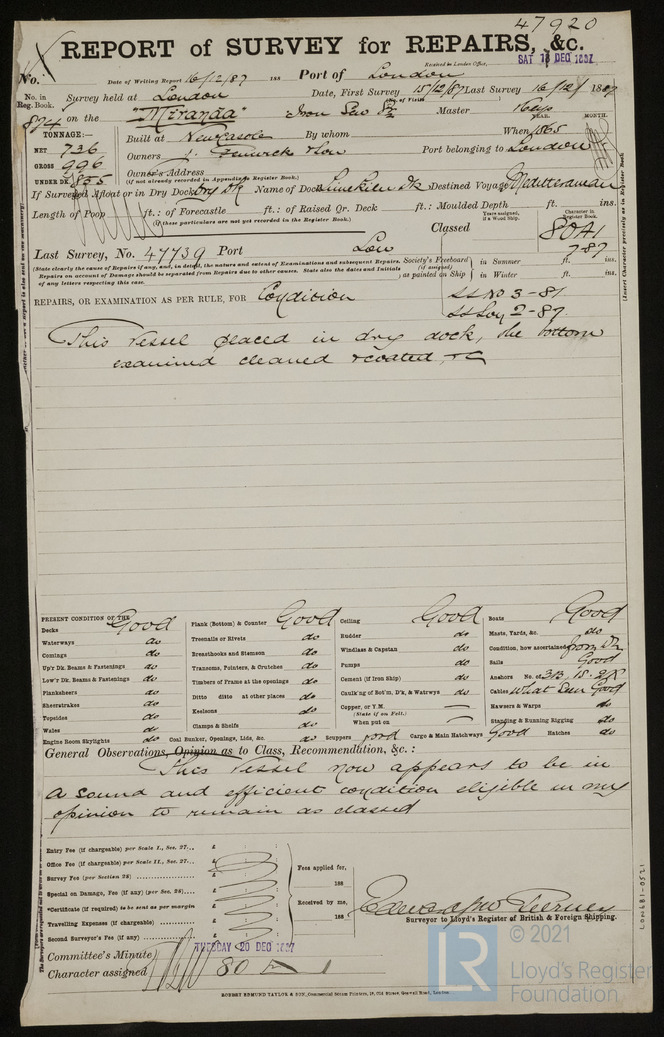 47920
REPORT of SURVEY for REPAIRS, &c.
Received in London Office,
No. Date of Writing Report 16/12/87 188 Port of London
No. in Reg. Book. Survey held at London Date, First Survey 15/12/87 Last Survey 16/12/ 1887
874 on the "Miranda" Iron Master Keys
TONNAGE:— Built at Newcastle By whom When 1865 YEAR. MONTH.
NET 736 Owners J. Fenwick & Son Port belonging to London
GROSS 996 Owner's Address
(if not already recorded in Appendix to Register Book.)
UNDER DK. 855
If Surveyed Afloat or in Dry Dock Dry Dk Name of Dock Limekiln Dk Destined Voyage Mediterranean
Length of Poop ft.: of Forecastle ft.: of Raised Qr. Deck ft.: Moulded Depth ft. ins.
(if these particulars are not yet recorded in the Register Book.)
Years assigned, if a Wood Ship. Character in Register Book.
Classed 80A1
7-87
Last Survey, No. 47739 Port Lon
(State clearly the cause of Repairs if any, and, in detail, the nature and extent of Examinations and subsequent Repairs.
Repairs on account of Damage should be separated from Repairs due to other causes. State also the dates and Initials
of any letters respecting this case.
Society's Freeboard (if assigned) as painted on Ship in Summer ft. ins.
in Winter ft. ins.
REPAIRS, OR EXAMINATION AS PER RULE, FOR Condition
SS No 3-81
2-87
This Vessel placed in dry dock, the bottom
examined cleaned & coated, &c
PRESENT CONDITION OF THE
Decks Good Plank (Bottom) & Counter Good Ceiling Good Boats Good
Waterways do Treenails or Rivets do Rudder do Masts, Yards, &c. do
Comings do Breasthooks and Stemson do Windlass & Capstan do Condition, how ascertained from Dk
Up'r Dk. Beams & Fastenings do Transoms, Pointers, & Crutches do Pumps do Sails Good
Low'r Dk. Beams & Fastenings do Timbers of Frame at the openings do Cement (if Iron Ship) do Anchors No. of 3B, 1S. 2K
Planksheers do Ditto ditto at other places do Caulk'ng of Bot'm, D'k, & Watrwys do Cables What Seen Good
Sheerstrakes do Keelsons do Copper, or Y.M. — Hawsers & Warps do
(State if on Felt.)
Topsides do Clamps & Shelfs do When put on — Standing & Running Rigging do
Wales do
Engine Room Skylights do Coal Bunker, Openings, Lids, &c. do Scuppers good Cargo & Main Hatchways Good Hatches do
General Observations, Opinion as to Class, Recommendation, &c. :
This Vessel now appears to be in
a sound and efficient condition eligible in my
opinion to remain as classed
Entry Fee (if chargeable) per Scale I., Sec. 27... £ : :
Office Fee (if chargeable) per Scale II., Sec. 27... £ : :
Survey Fee (per Section 28) £ : :
Special on Damage, Fee (if any) (per Sec. 28) £ : :
*Certificate (if required) to be sent as per margin
Travelling Expenses (if chargeable) £ : :
Second Surveyor's Fee (if any) £ : :
Fees applied for, 188
Received by me, 188
Surveyor to Lloyd's Register of British & Foreign Shipping.
Committee's Minute TUESDAY 20 DEC 1887
Character assigned 80 A 1
ROBERT EDMUND TAYLOR & SON, Commercial Steam Printers, 19, Old Street, Goswell Road, London.
LON681-0521
LR
© 2021
Lloyd's Register
Foundation